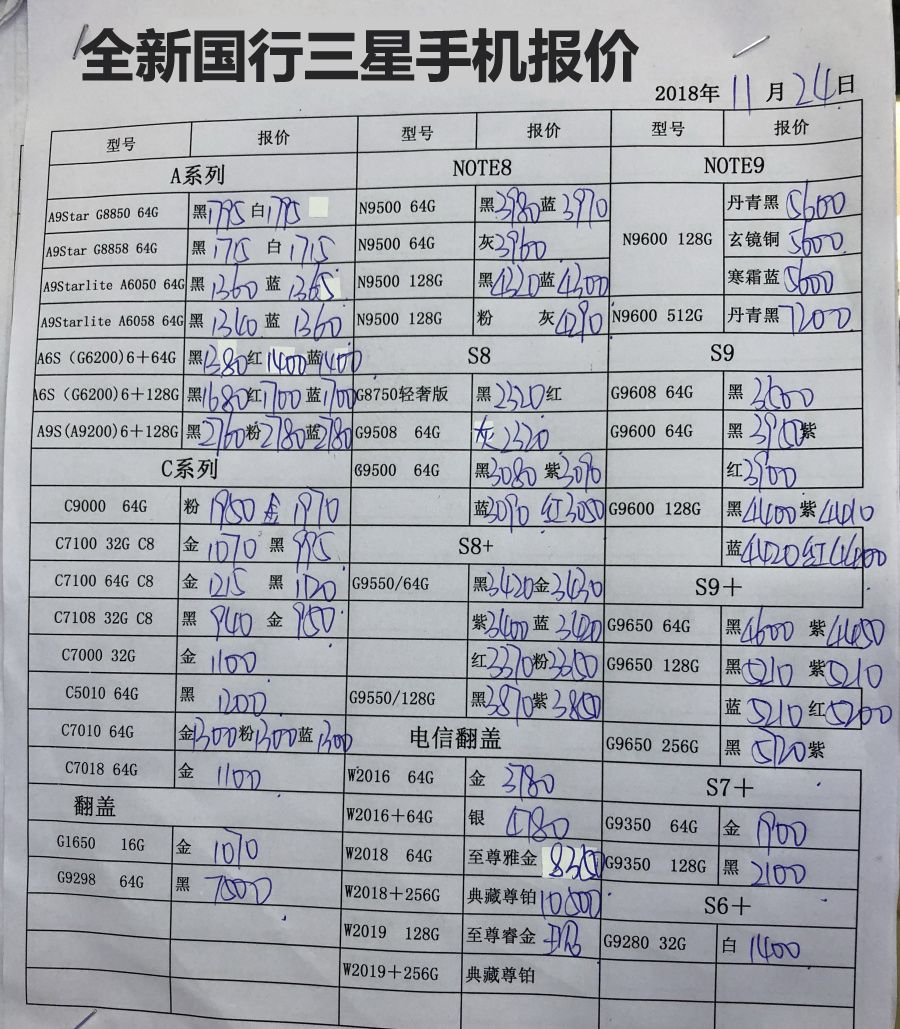 全新国行三星手机报价
2018年 11 月 24 日
型号 报价 型号 报价 型号 报价
A系列 NOTE8 NOTE9
A9Star G8850 64G 黑1795 白1795 N9500 64G 黑3980 蓝3970 N9600 128G 丹青黑 5600
A9Star G8858 64G 黑 1715 白 1715 N9500 64G 灰3960 玄镜铜 5600
A9Starlite A6050 64G 黑 1360 蓝 1365 N9500 128G 黑4320 蓝4300 寒霜蓝 5600
A9Starlite A6058 64G 黑 1340 蓝 1360 N9500 128G 粉 灰4290 N9600 512G 丹青黑7200
A6S (G6200)6+64G 黑1380 红1400 蓝1400 S8 S9
A6S (G6200)6+128G 黑1680 红1700 蓝1700 G8750轻奢版 黑2320 红 G9608 64G 黑 3500
A9S(A9200)6+128G 黑2760 粉2780 蓝2780 G9508 64G 灰2320 G9600 64G 黑 紫
C系列 G9500 64G 黑3080 紫3090 红3900
C9000 64G 粉 1950 金 1970 蓝3090 红3050 G9600 128G 黑4400 紫4410
C7100 32G C8 金 1070 黑 995 S8+ 蓝4420 红4400
C7100 64G C8 金 1215 黑 1120 G9550/64G 黑3420 金3430 S9+
C7108 32G C8 黑 940 金 950 紫3400 蓝 3420 G9650 64G 黑4600 紫4450
C7000 32G 金 1100 红3370 粉3350 G9650 128G 黑5210 紫5210
C5010 64G 黑 1200 G9550/128G 黑3870 紫3850 蓝 5210 红5200
C7010 64G 金1300 粉1300 蓝1300 电信翻盖 G9650 256G 黑 5720 紫
C7018 64G 金 1100 W2016 64G 金 3780 S7+
翻盖 W2016+64G 银 4780 G9350 64G 金 1900
G1650 16G 金 1070 W2018 64G 至尊雅金 8350 G9350 128G 黑 2100
G9298 64G 黑 7500 W2018+256G 典藏尊铂10500 S6+
W2019 128G 至尊睿金 G9280 32G 白 1400
W2019+256G 典藏尊铂